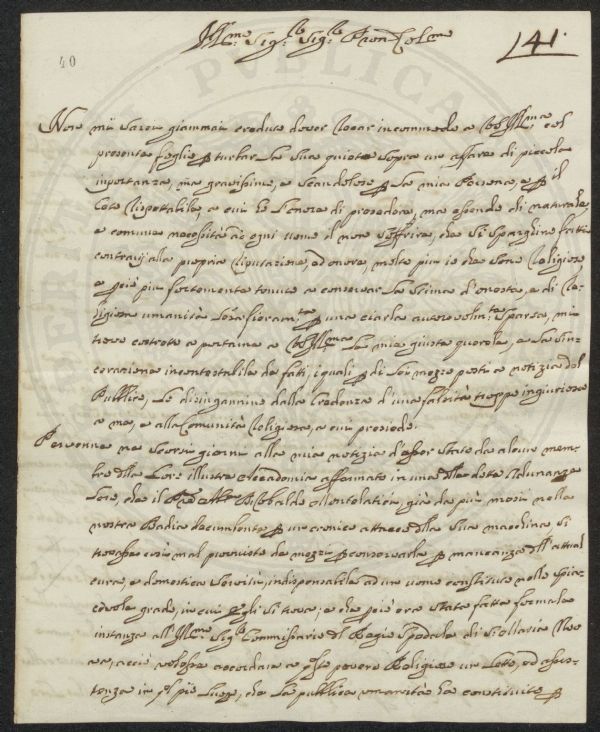 Ill.mo Sig.re Sig.re Pron Col.mo
141.
40
Non mi sarei giammai creduto dover recar incommodo a VS Ill.ma col
presente foglio p turbar la sua quiete sopra un affare di piccola
importanza, ma gravissimo, e scandaloso p la mia Persona, e p il
Ceto rispettabile, a cui ho l'onore di presedere, ma essendo di naturale
e comune necessità ad ogni uomo il non soffrire, che si sparghino fatti
contrarj alla propria riputazione, ed onore, molto più io che sono Religioso
e poi più fortemente tenuto a conservar la stima d'onesto, e di Re-
ligioso umanità p una ciarla sparsa, mi
trovo costretto a portarne a VS Ill.ma la mia giusta querela, e la sin-
cerazione incontestabile de fatti, i quali p di Lei mezzo posti a notizia del
Pubblico, Lo disingannino dalla credenza d'una falsità troppo ingiuriosa
a me, e alla Comunità religiosa, a cui presiedo.
Pervenne ne scorsi giorni alla mia notizia d'esser stato da alcun mem-
bro della Loro illustre Accademia affermato in una delle dette Adunanze
Loro, che il già da più mesi nella
nostra Badia decumbente p un cronico attacco della sua macchina, si
trovasse così mal provvisto de mezzi p conservarla p mancanza dell'attual
cura, e domestica servitù, indispensabile ad un uomo constituito nello spia-
cevole grado, in cui egli si trova; e che poi era stata fatta formale
instanza all'Ill.mo Sig.re Commissario del Regio Spedale di S. Maria Nuo
va, acciò volesse accordare a qsto povero Religioso un Letto, ed assis-
tenza in ql pio Luogo, che la pubblica umanità ha constituito p